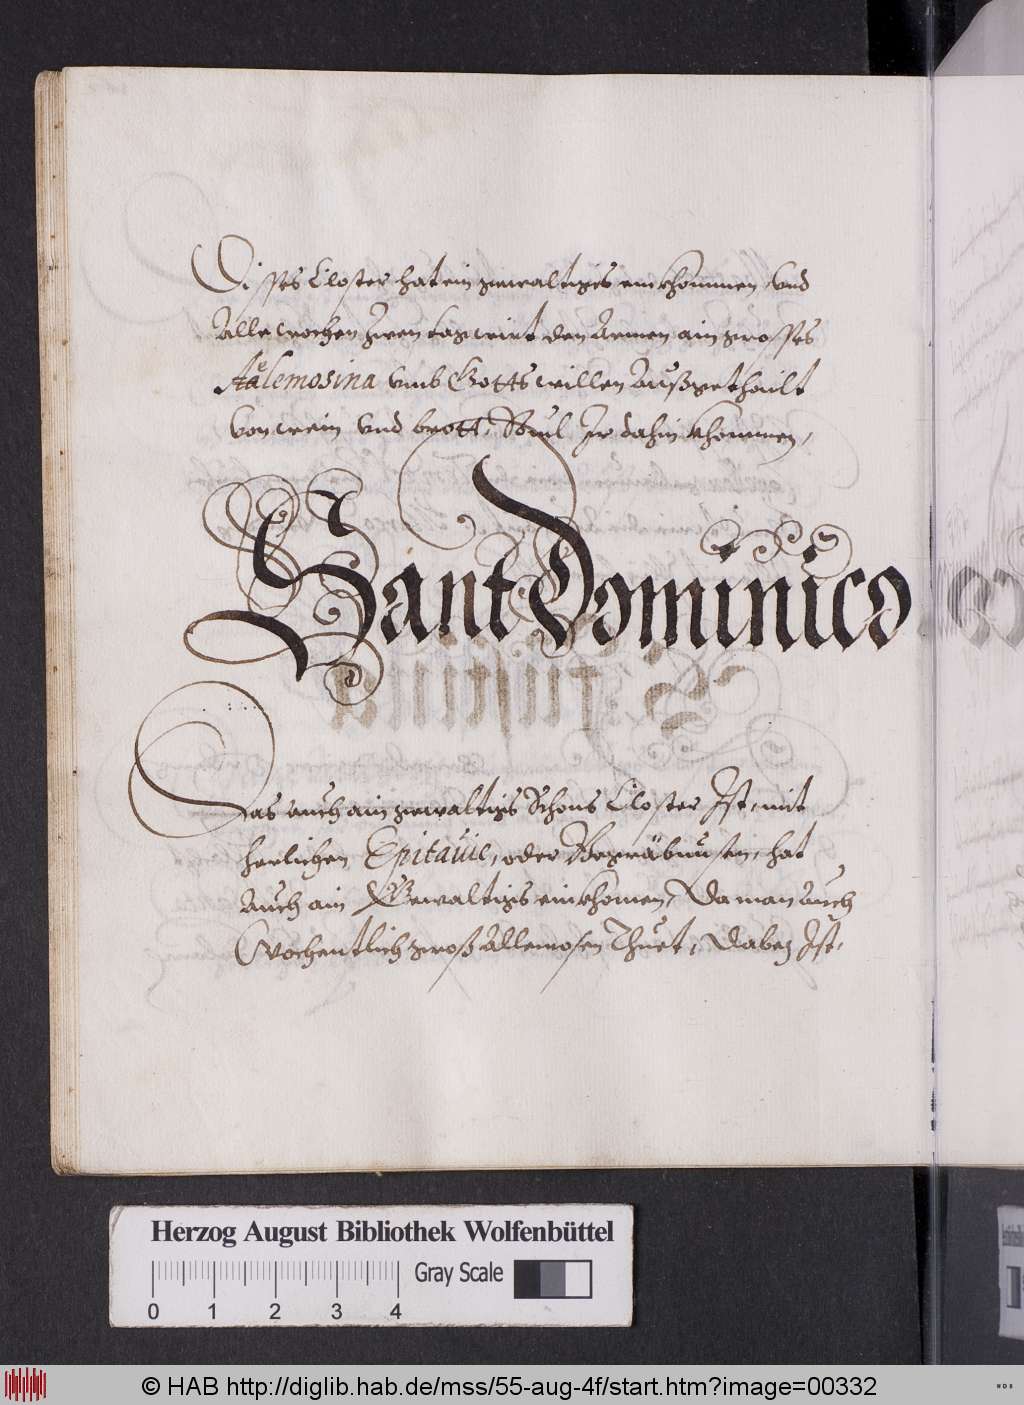 Disses Closter hat ein gewaltiges einkhommen, Vnd
Alle wochen zwen tag wirt den Armen ain grosses
Aälemosina vmb Gotts willen Außgethailt
Von wein Vnd brott, Souil Ir dahin khommen,
Sant Dominico
Das auch ain gewaltigs Schöns Closter Ist, mit
herlichen Epitauie, oder Begräbnusen, hat
Auch ain Gewaltigs einkhomen, Da man Auch
Wochentlich groß Allemosen Thuet, Dabey Ist,
Herzog August Bibliothek Wolfenbüttel
Gray Scale
0 1 2 3 4
© HAB http://diglib.hab.de/mss/55-aug-4f/start.htm?image=00332